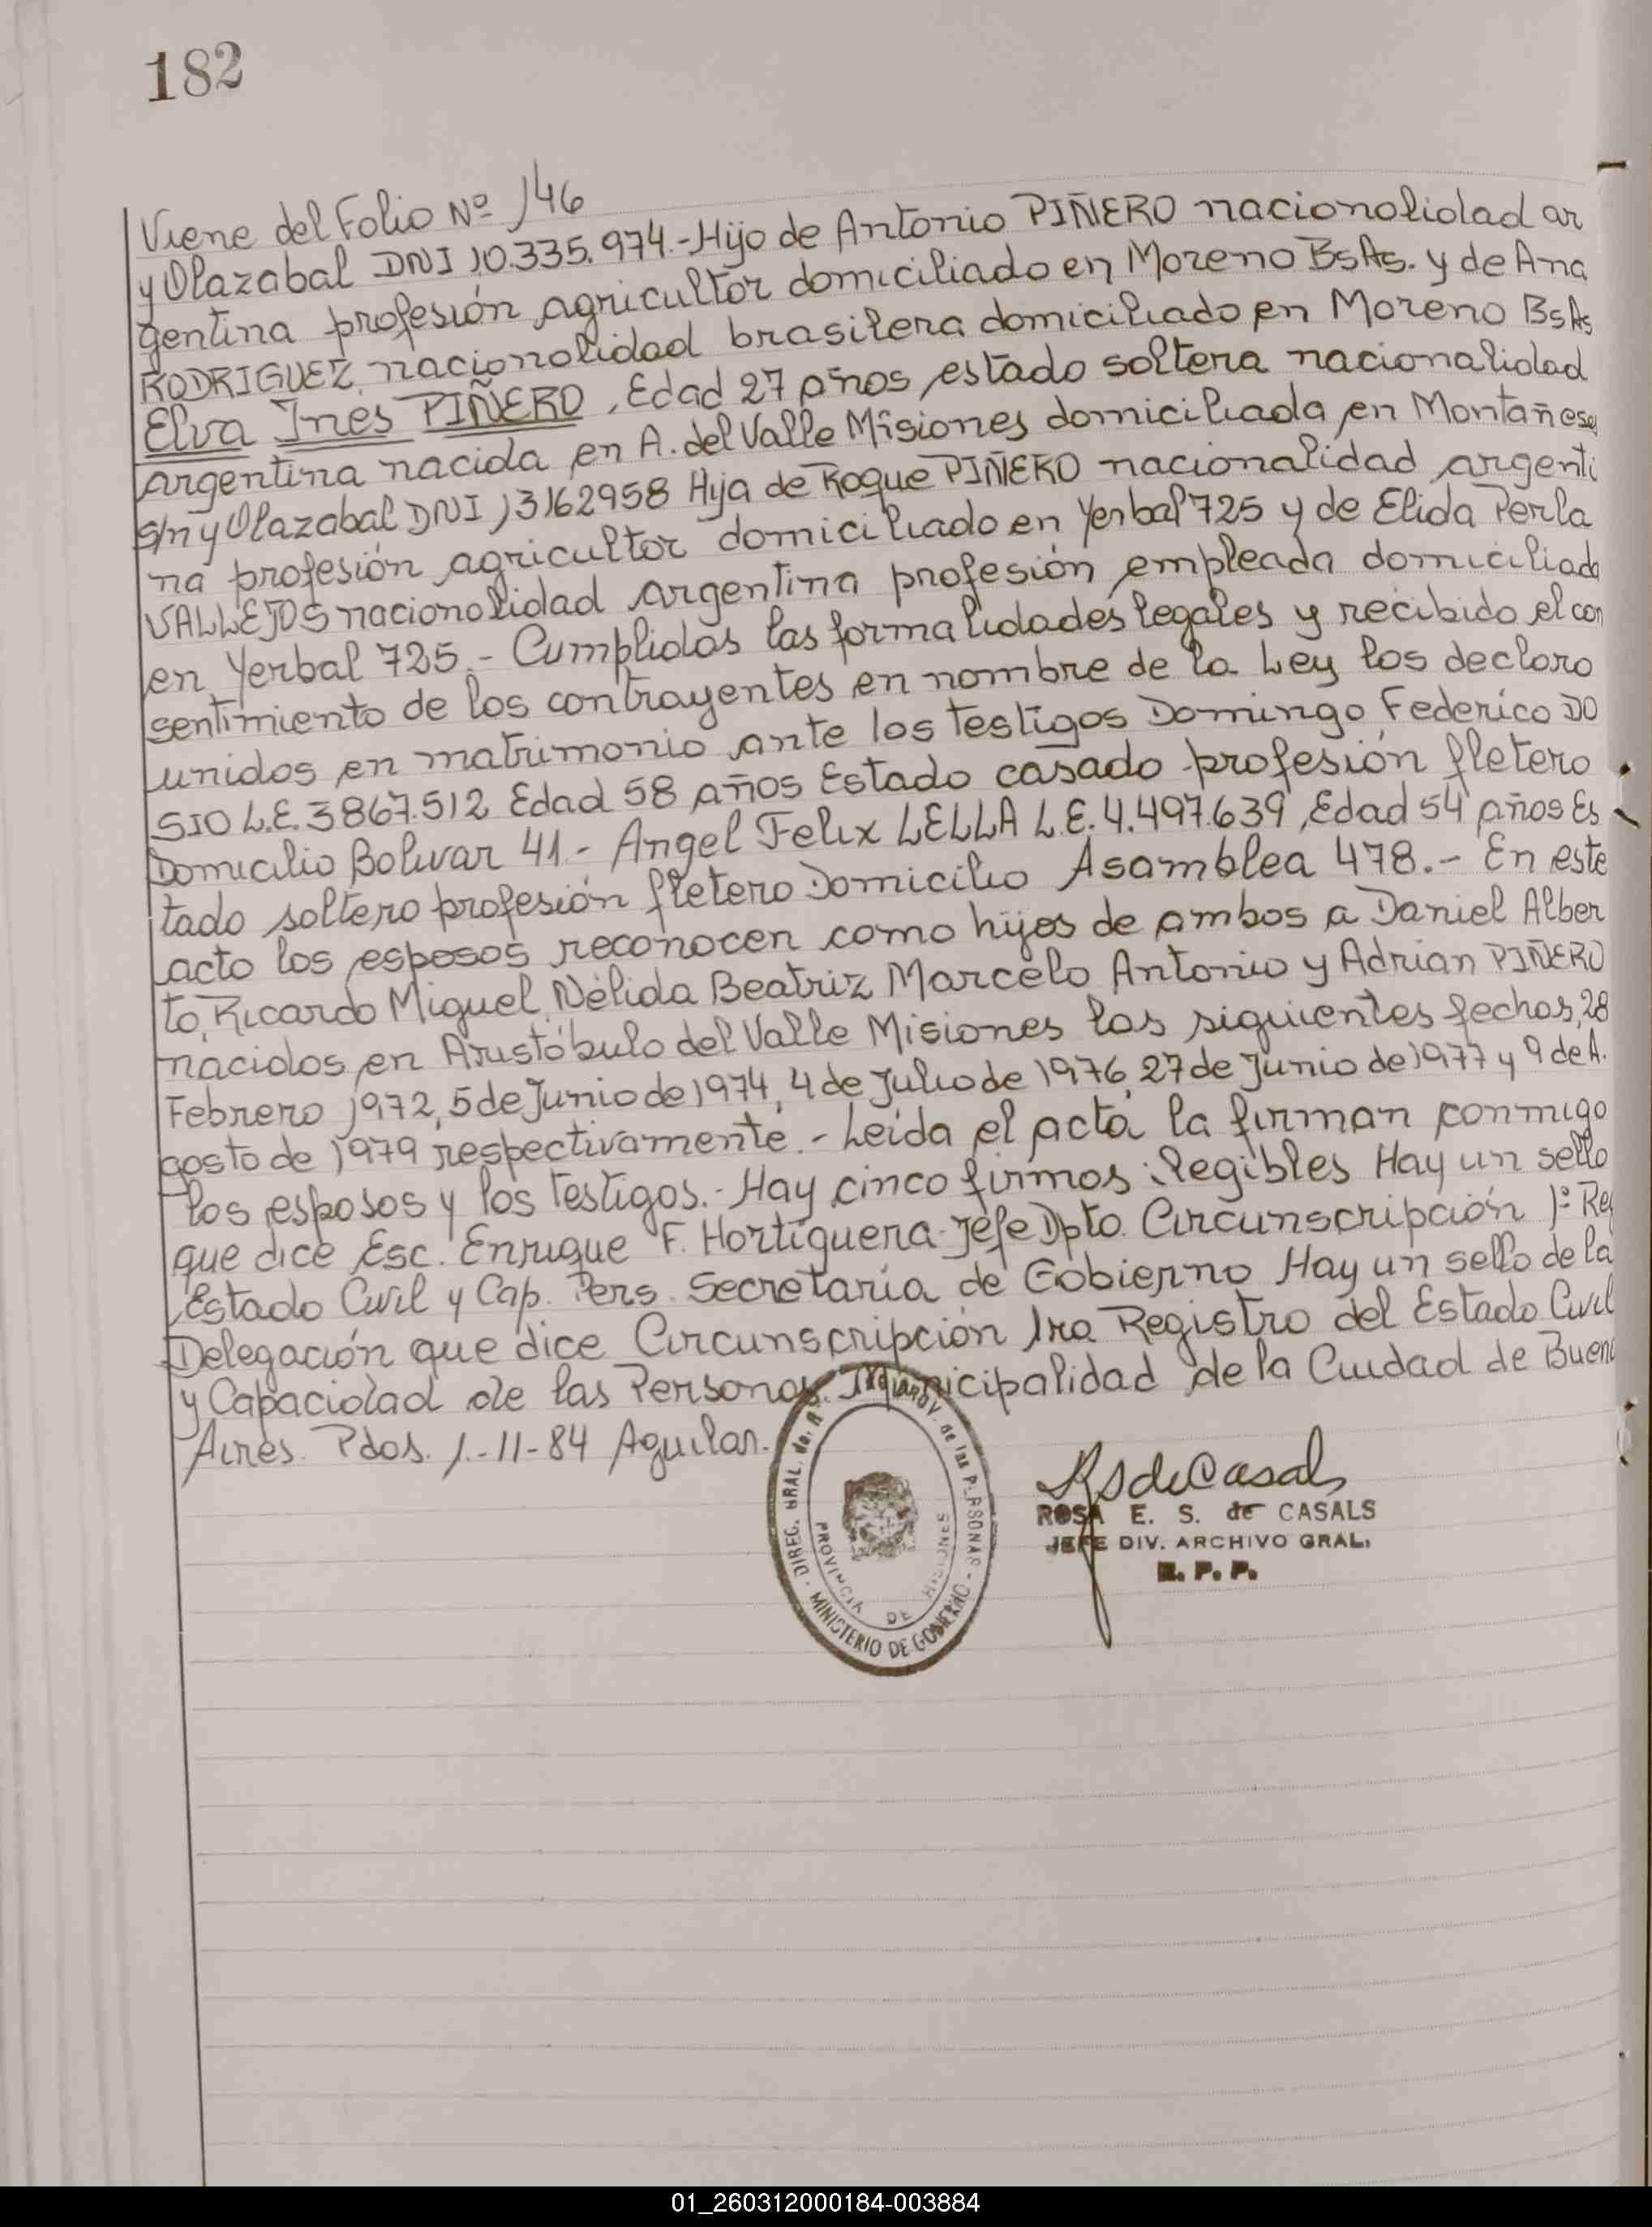 182
Viene del Folio Nº 146
y Olazabal DNI 10.335.974.- Hijo de Antonio PIÑERO nacionalidad ar
gentina profesión agricultor domiciliado en Moreno BsAs. y de Ana
RODRIGUEZ nacionalidad brasilera domiciliado en Moreno BsAs
Elva Inés PIÑERO, Edad 27 años estado soltera nacionalidad
Argentina nacida en A. del Valle Misiones domiciliada en Montañese
s/n y Olazabal DNI 13162958 Hija de Roque PIÑERO nacionalidad argenti
na profesión agricultor domiciliado en Yerbal 725 y de Elida Perla
VALLEJOS nacionalidad argentina profesión empleada domiciliada
en Yerbal 725.- Cumplidas las formalidades legales y recibido el con
sentimiento de los contrayentes en nombre de la Ley los declaro
unidos en matrimonio ante los testigos Domingo Federico DO
SIO L.E. 3867.512 Edad 58 años Estado casado profesión fletero
Domicilio Bolivar 41.- Angel Felix LELLA L.E. 4.497.639, Edad 54 años Es
tado soltero profesión fletero Domicilio Asamblea 478.- En este
acto los esposos reconocen como hijos de ambos a Daniel Alber
to, Ricardo Miguel, Nélida Beatriz Marcelo Antonio y Adrian PIÑERO
nacidos en Aristóbulo del Valle Misiones las siguientes fechas, 28
Febrero 1972, 5 de Junio de 1974, 4 de Julio de 1976, 27 de Junio de 1977 y 9 de A.
gosto de 1979 respectivamente.- Leída el acta la firman conmigo
los esposos y los testigos.- Hay cinco firmas ilegibles Hay un sello
que dice Esc. Enrique F. Hortiguera Jefe Dpto. Circunscripción 1º Reg
Estado Civil y Cap. Pers. Secretaría de Gobierno Hay un sello de la
Delegación que dice Circunscripción 1ra Registro del Estado Civil
y Capacidad de las Personas. Municipalidad de la Ciudad de Buenos
Aires. Pdas. 1.-11-84 Aguilar.
DIREC. GRAL. de. PROV. de las PERSONAS - MINISTERIO DE GOBIERNO -
PROVINCIA DE MISIONES
RSdeCasals
ROSA E. S. de CASALS
JEFE DIV. ARCHIVO GRAL.
R. P. P.
01_260312000184-003884